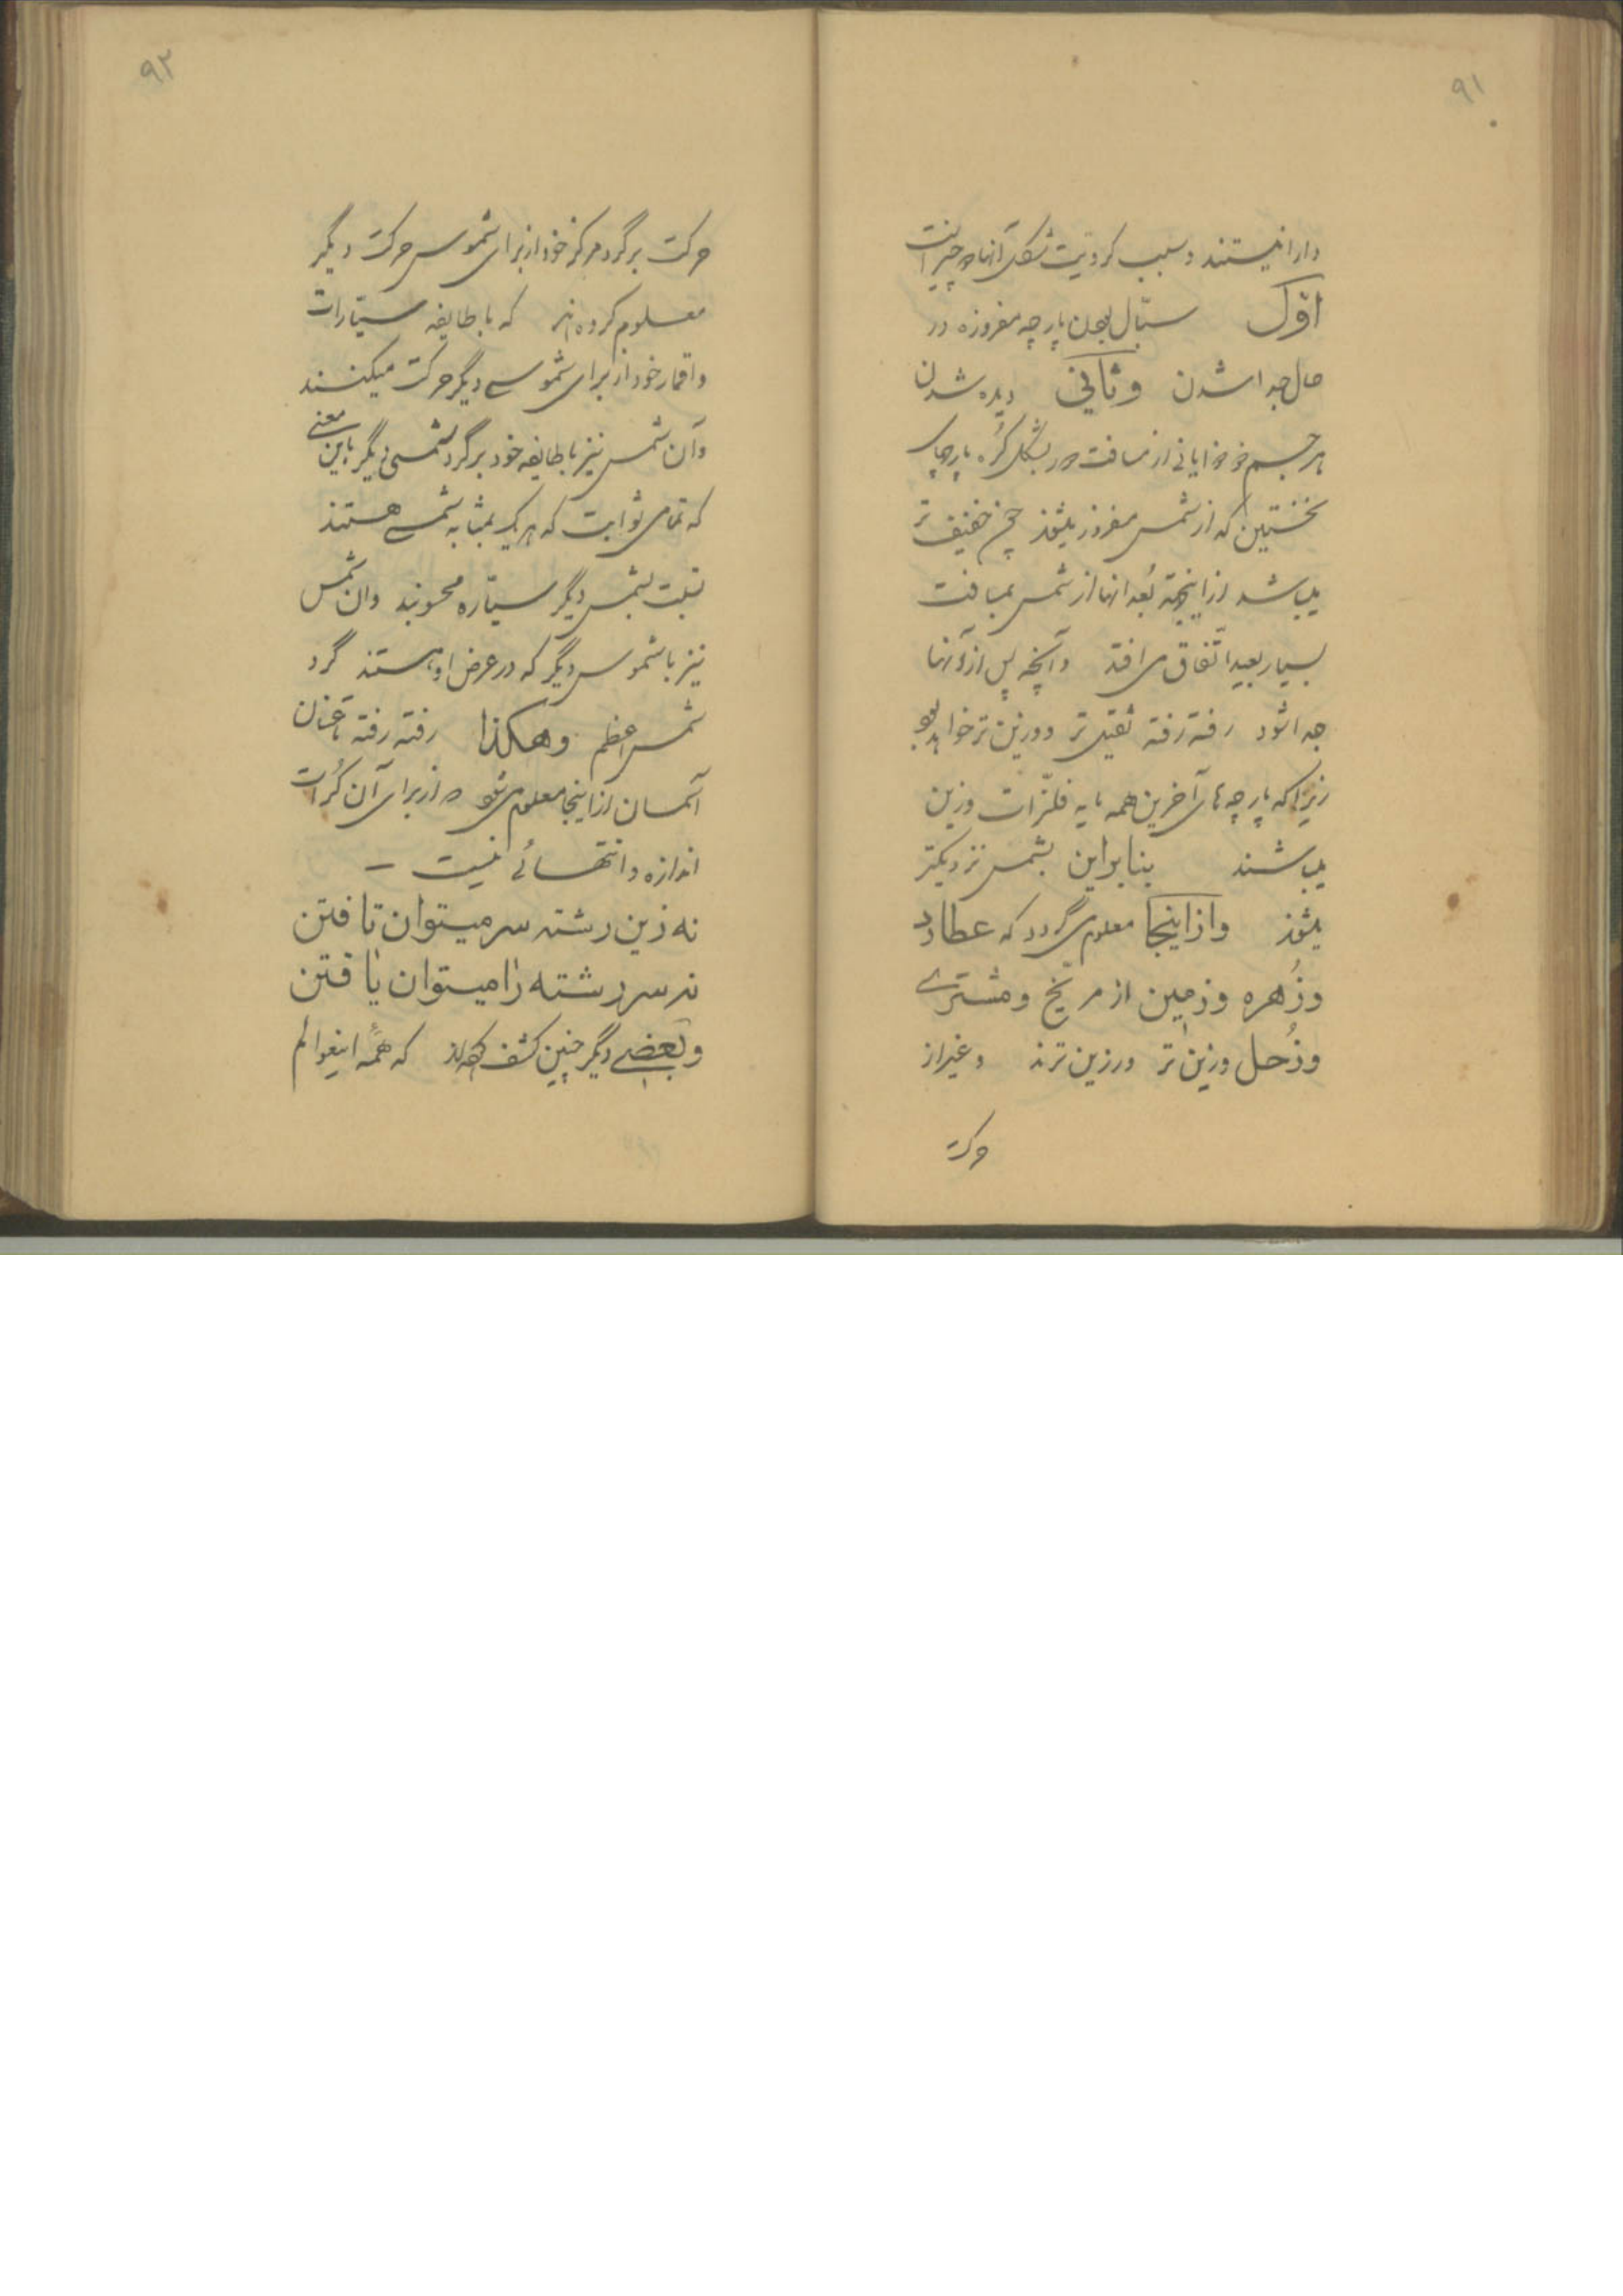 ۹۱
دارا نیستند و سبب کرویت شکل آنها دو چیز است
اوّل سیّال بودن پارچه مفروزه در
حال جدا شدن وثانی دیده شدن
هر جسم از مسافت دور بشکل کُره پارچهای
نخستین که از شمس مفروز میشوند خفیف تر
میباشد ازاینجهة بُعد آنها از شمس بمسافت
بسیار بعید اتّفاق می افتد و آنچه پس از آنها
جدا شود رفته رفته ثقیل تر و وزین تر خواهد بود
زیرا که پارچه های آخرین همه مایه فلزّات وزین
میباشند بنابراین بشمس نزدیکتر
میشوند وازاینجا معلوم میگردد که عطارد
وزُهره وزمین از مریّخ ومشتری
وزُحل وزین تر ورزین ترند وغیر از
حرکت
۹۲
حرکت برگرد مرکز خود از برای شموس حرکت دیگر
معلوم کرده اند که با طایفه سیّارات
و اقمار خود از برای شموسی دیگر حرکت میکنند
وآن شمس نیز با طایفه خود برگرد شمسی دیگر باین معنی
که تمامی ثوابت که هر یک بمثابه شمسی هستند
نسبت بشمس دیگر سیّاره محسوبند وان شمس
نیز با شموس دیگر که در عرض او هستند گرد
شمس اعظم وهکذا رفته رفته تا عنان
آسمان ازاینجا معلوم میشود که از برای آن کُرات
اندازه و انتهائی نیست –
نه زین رشته سر میتوان تافتن
نه سر رشته را میتوان یافتن
وبعضی دیگر چنین کشف کرده اند که همه اینعوالم